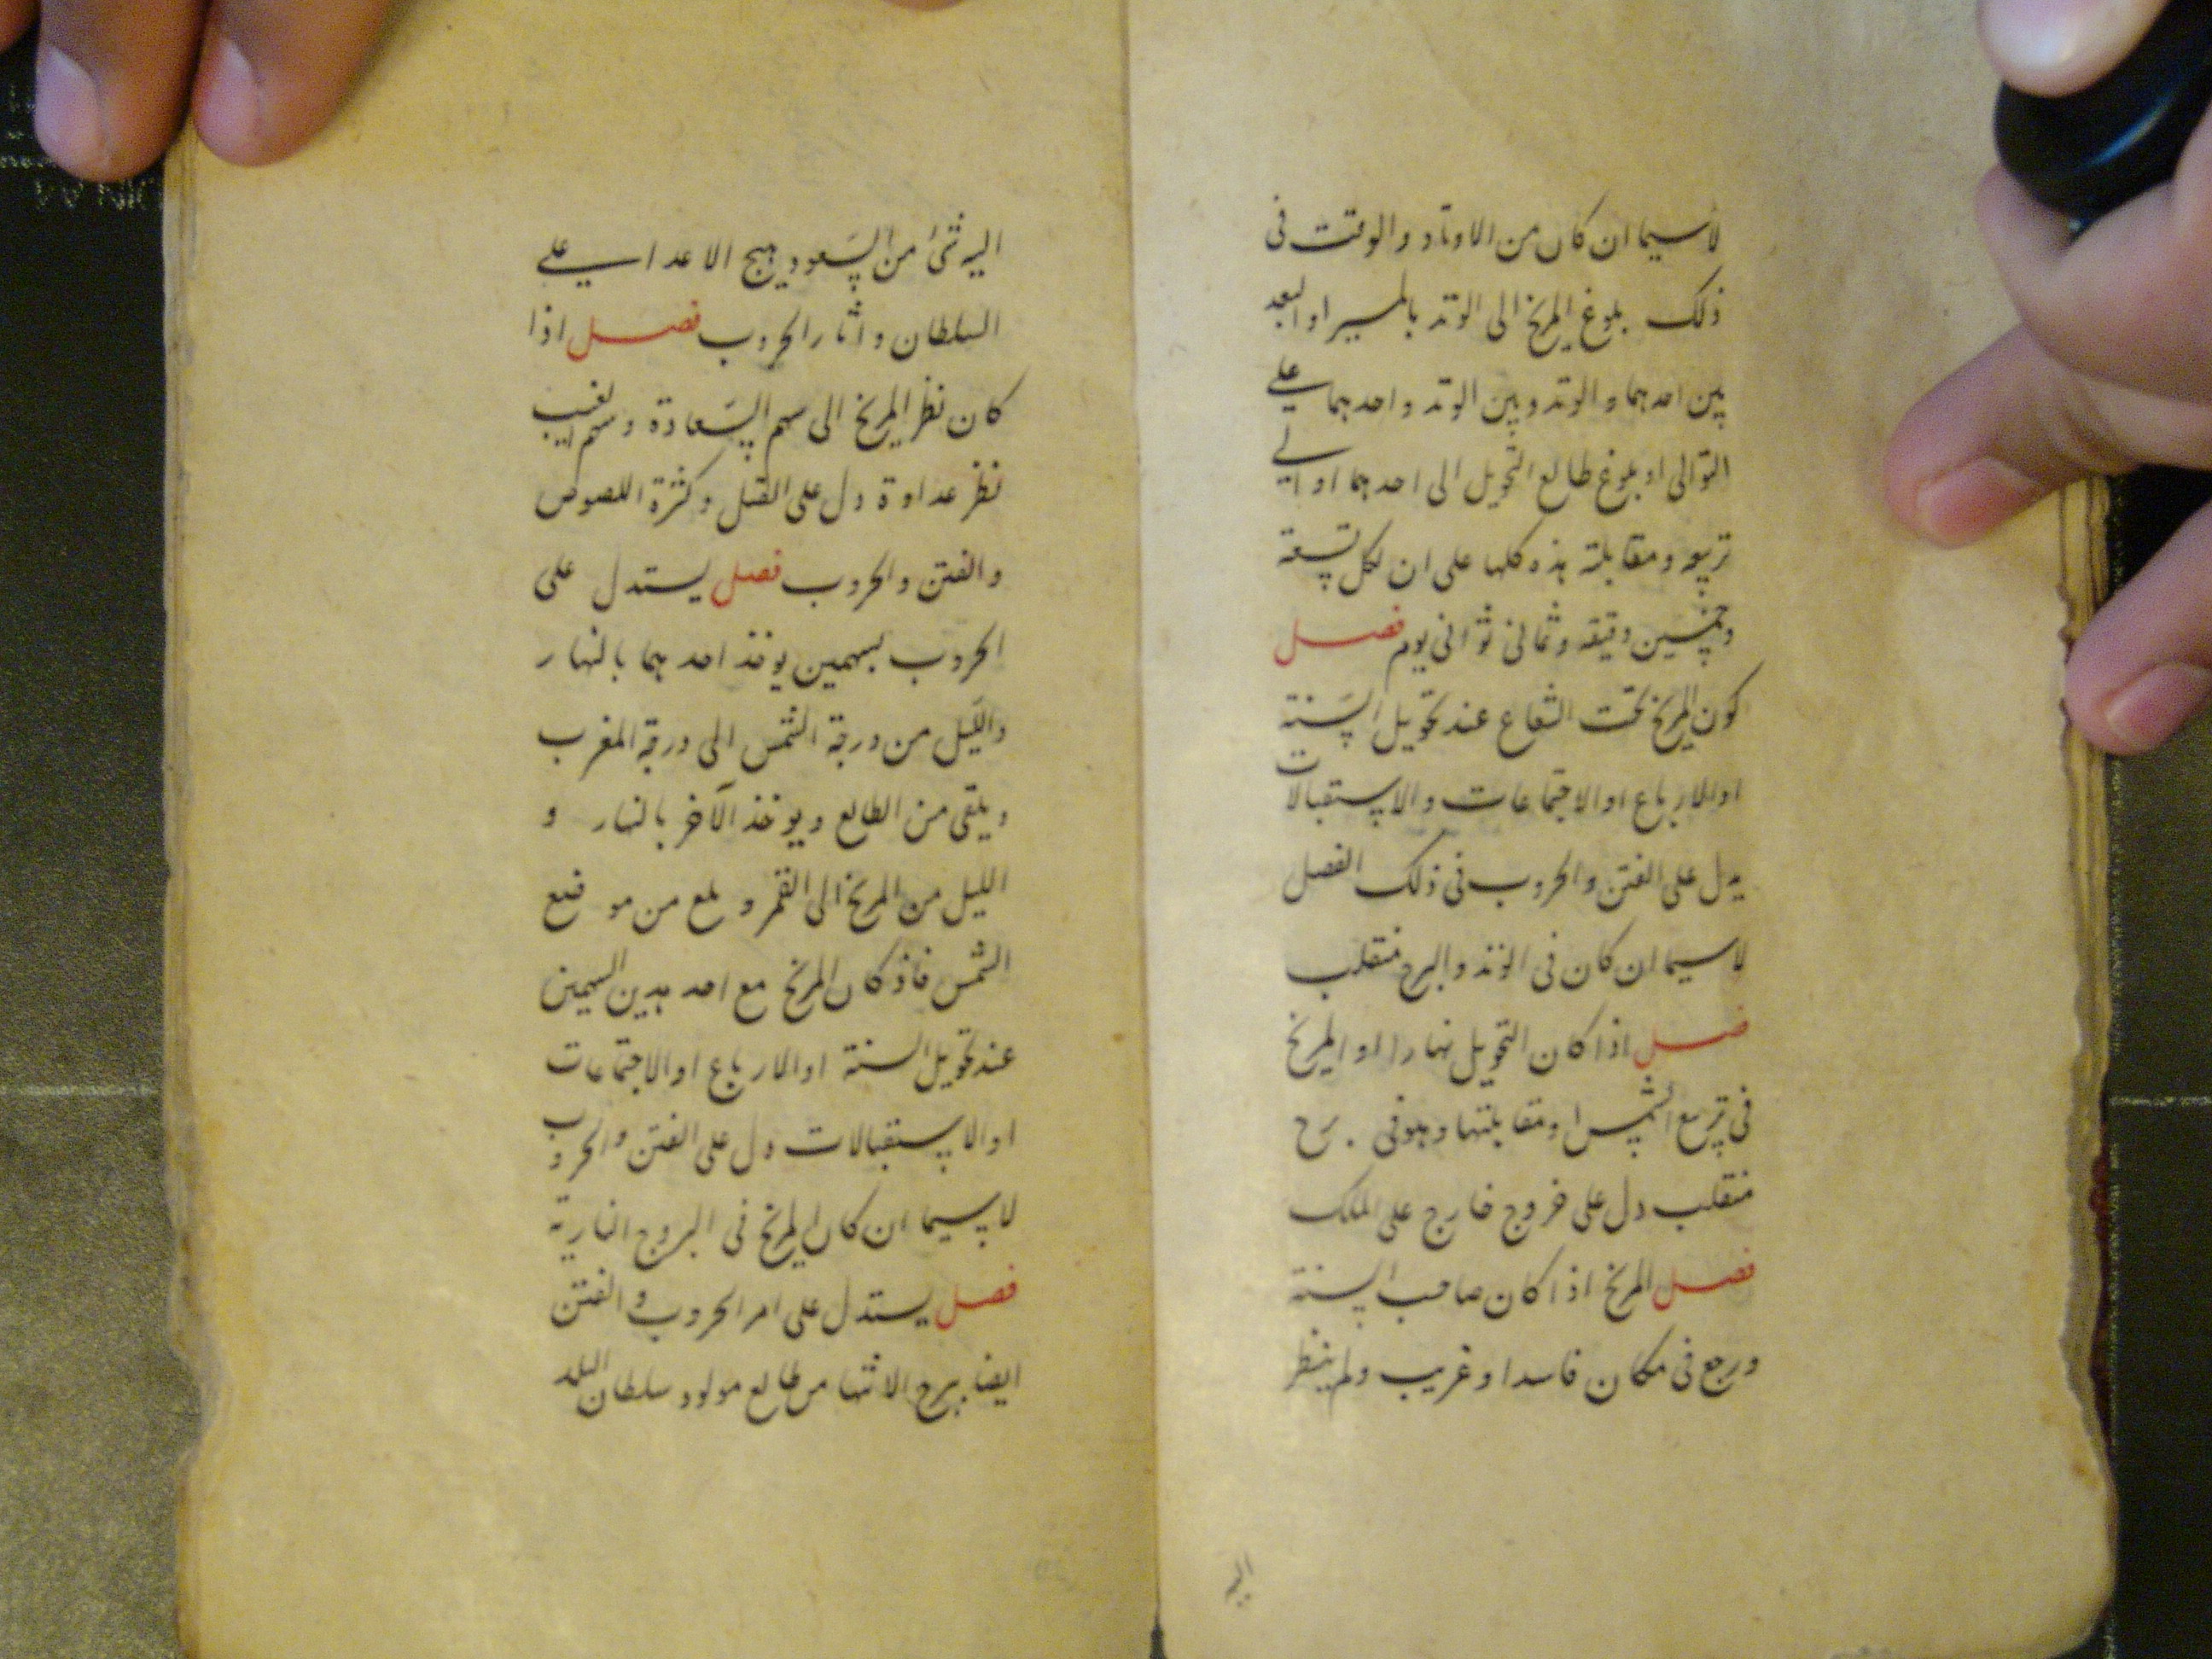 لاسيما ان كان من الاوتاد والوقت فى
ذلك بلوغ المريخ الى الوتد بالمسير او البعد
بين احدهما و الوتد وبين الوتد و احدهما على
التوالى او بلوغ طالع التحويل الى احدهما او الى
تربيعه ومقابلته هذه كلها على ان لكل تسعة
وخمسين دقيقه وثمانى ثوانى يوم فصل
كون المريخ تحت الشعاع عند تحويل السَنة
او الارباع او الاجتماعات و الاستقبالات
يدل على الفتن والحروب فى ذلك الفصل
لاسيما ان كان فى الوتد و البرج منقلب
فصل اذا كان التحويل نهارا او المريخ
فى تربيع الشمس او مقابلتها وهو فى برج
منقلب دل على خروج خارج على الملك
فصل المريخ اذا كان صاحب السنة
ورجع فى مكان فاسد او غريب ولم ينظر
اليه
اليه شئ من السَعود يهيج الاعدا على
السلطان و اثار الحروب فصل اذا
كان نظر المريخ الى سهم السَعادة وسهم الغيب
نظر عداوة دل على القتل وكثرة اللصوص
و الفتن و الحروب فصل يستدل على
الحروب بسهمين يوخذ احدهما بالنهار
و الليل من درجة الشمس الى درجة المغرب
ويلقى من الطالع ويوخذ الآخر بالنهار و
الليل من المريخ الى القمر و من موضع
الشمس فاذ كان المريخ مع احد هدين السهمين
عند تحويل السنة او الارباع او الاجتماعات
او الاستقبالات دل على الفتن و الحروب
لاسيما ان كان المريخ فى البروج النارية
فصل يستدل على امر الحروب و الفتن
ايضا ببرج الانتها من طالع مولود سلطان البلد